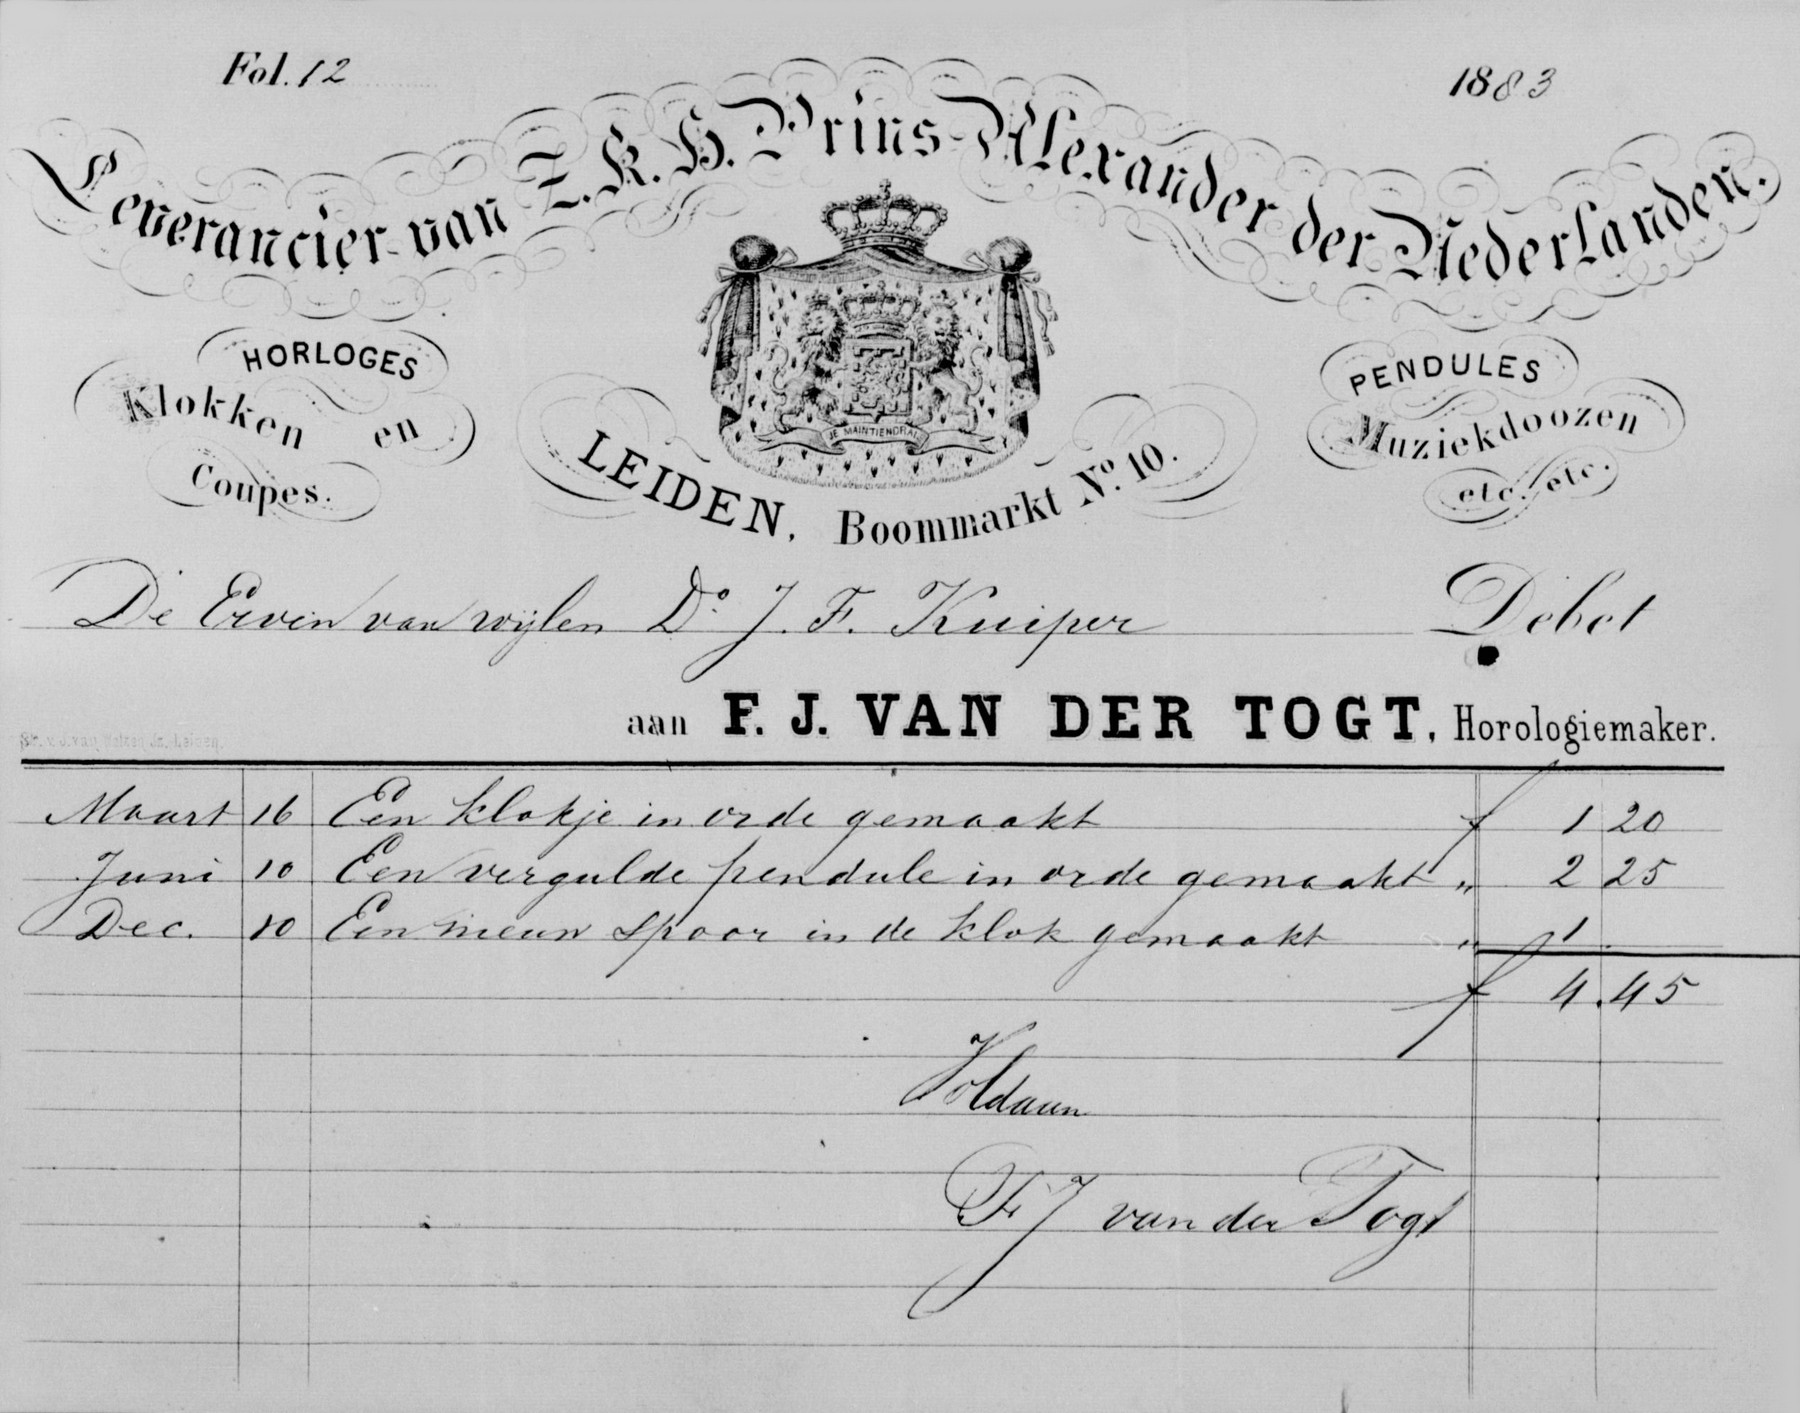 Fol. 12
1883
Leverancier van Z.K.H. Prins Alexander der Nederlanden.
HORLOGES
Klokken en
Coupes.
PENDULES
Muziekdoozen
etc. etc.
JE MAINTIENDRAI
LEIDEN, Boommarkt No. 10.
De Erven van wijlen Do. J. F. Kuiper Debet
aan F. J. VAN DER TOGT, Horologiemaker.
Maart 16 Een klokje in orde gemaakt f 1 20
Juni 10 Een vergulde pendule in orde gemaakt " 2 25
Dec. 10 Een nieuw spoor in de klok gemaakt " 1 .
f 4.45
Voldaan
F J van der Togt